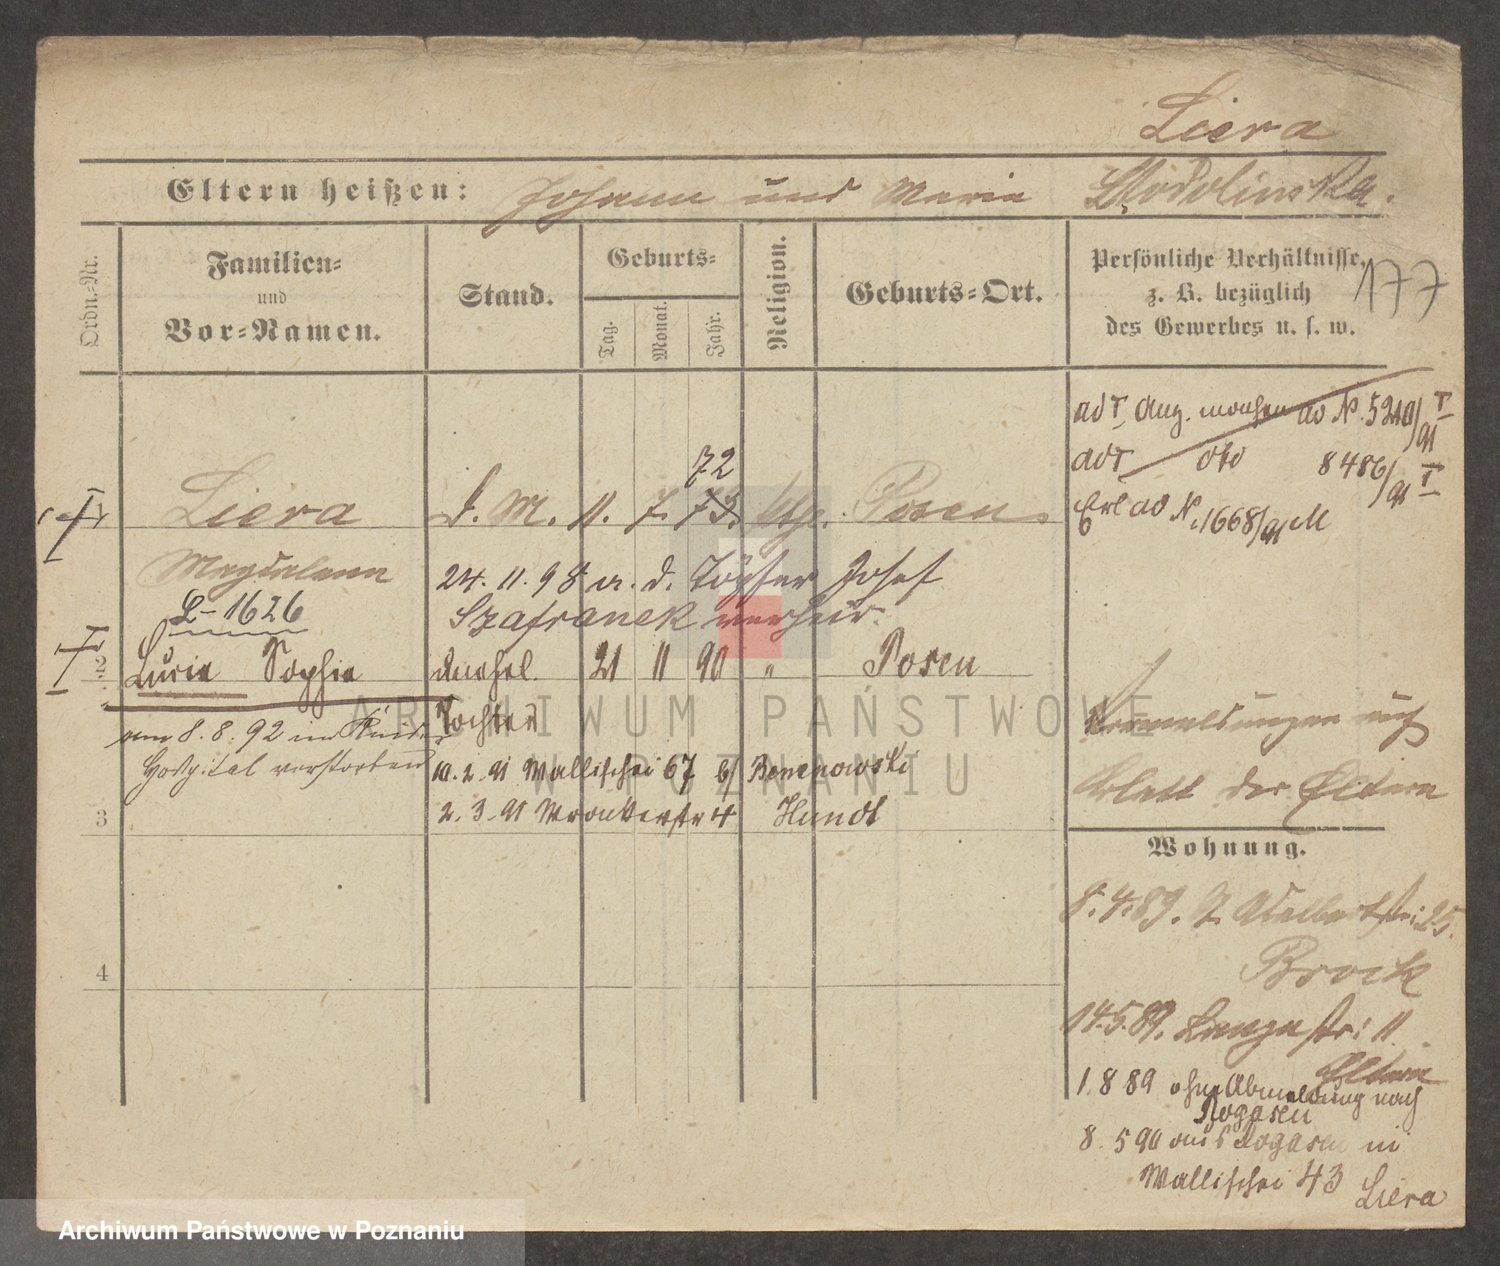 Liera
Eltern heißen: Johann und Marie Stodolinska.
Ordn.-Nr.
Familien-
und
Vor-Namen.
Stand.
Geburts-
Tag.
Monat.
Jahr.
Religion.
Geburts-Ort.
Persönliche Verhältnisse,
z. B. bezüglich
des Gewerbes u. s. w.
177
ad I Aug. ad N. 5210/91 I
ad I 8486/91 I
Erl ad N. 1668/91 M
72
Liera d. M. 11. 7. 73. ktg. Posen
Magdalena
24. 11. 98 m. d. Töpfer Josef
L-1626
Szafranek verheir.
2 Luria Sophie unehel. 21 11 90 " Posen
Tochter
am 8. 8. 92 im Kind.
Hospital verstorben
10. 2. 91 Wallischei 67 b/ Bemenowski
2. 3. 91 Wronkerstr 4 Hundt
3
Vermeldungen auf
Blatt der Eltern
Wohnung.
8. 4. 89. Z. Adalbertstr: 25.
Brock
4
14. 5. 89. Lange str: 11.
Eltern
1. 8 89 ohne Abmeldung nach
Rogasen
8. 5 90 aus Rogasen in
Wallischei 43 Liera
ARCHIWUM PAŃSTWOWE
W POZNANIU
Archiwum Państwowe w Poznaniu